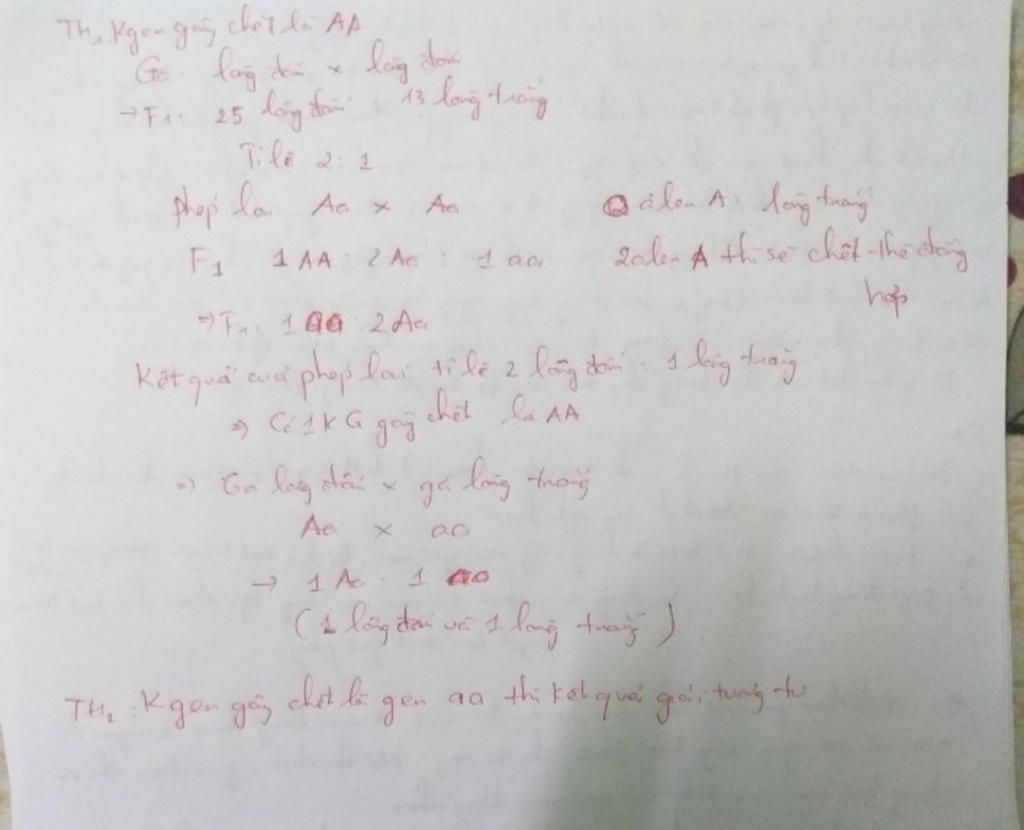 TH₁ Kgen gây chết là AA
Gà lông đốm x lông đốm
→ F1: 25 lông đốm 13 lông trắng
Tỉ lệ 2:1
phép lai Aa x Aa
alen A: lông trắng
F1 1 AA : 2 Aa : 1 aa
2 alen A thì sẽ chết - thể đồng
hợp
⇒ F1: 1 aa : 2 Aa
Kết quả của phép lai tỉ lệ 2 lông đốm : 1 lông trắng
⇒ Có 1 KG gây chết là AA
⇒ Gà lông đốm x gà lông trắng
Aa x aa
→ 1 Aa : 1 aa
(1 lông đốm và 1 lông trắng)
TH₂: Kgen gây chết là gen aa thì kết quả giải tương tự